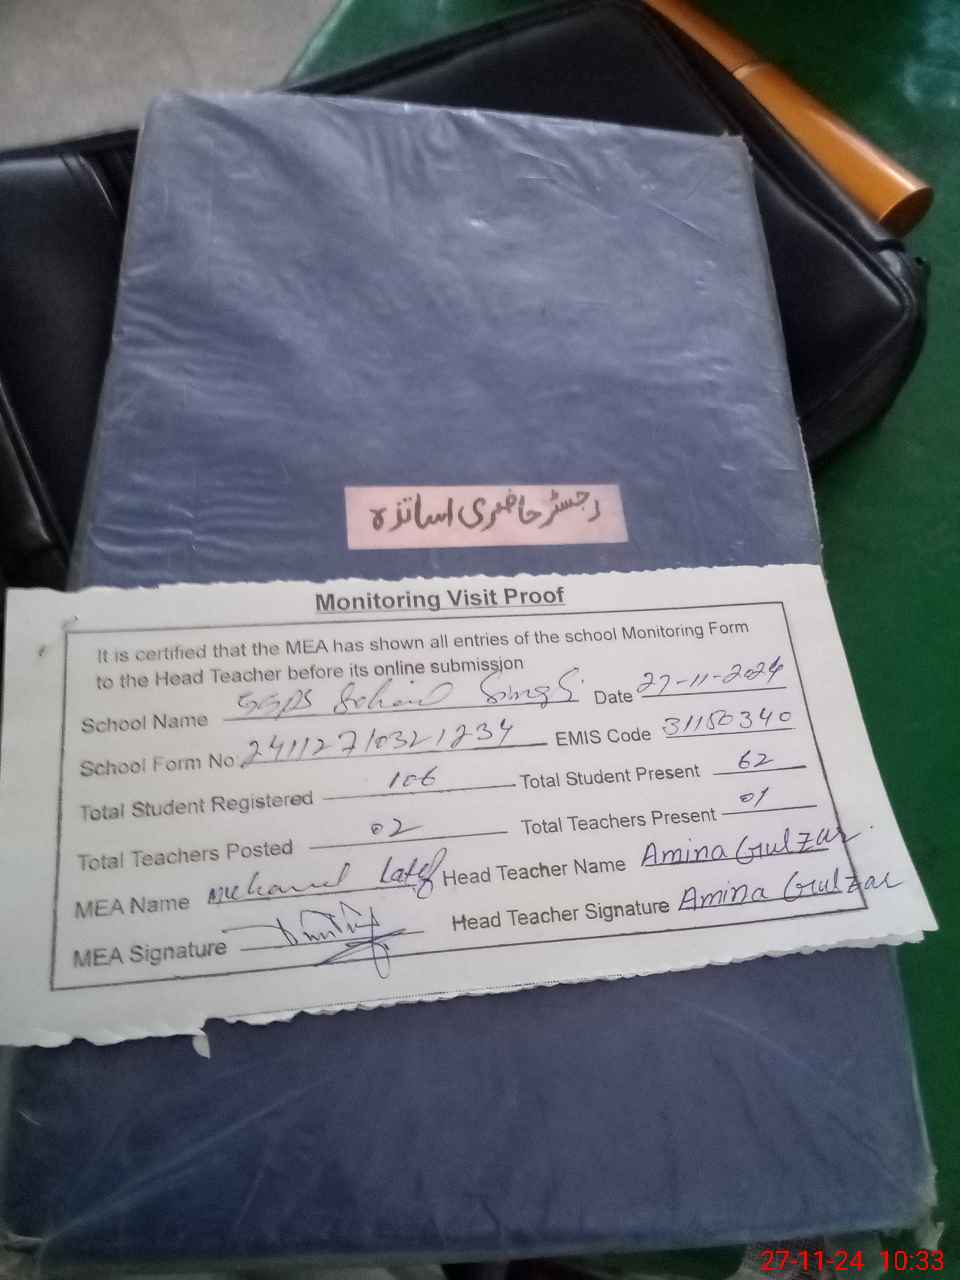 رجسٹر حاضری اساتذہ
Monitoring Visit Proof
It is certified that the MEA has shown all entries of the school Monitoring Form
to the Head Teacher before its online submission
School Name Date 27-11-2024
School Form No. 24112710321234 EMIS Code 31150340
Total Student Registered 106 Total Student Present 62
Total Teachers Posted 02 Total Teachers Present 01
MEA Name Head Teacher Name Amina Gulzar.
MEA Signature Head Teacher Signature Amina Gulzar
27-11-24 10:33